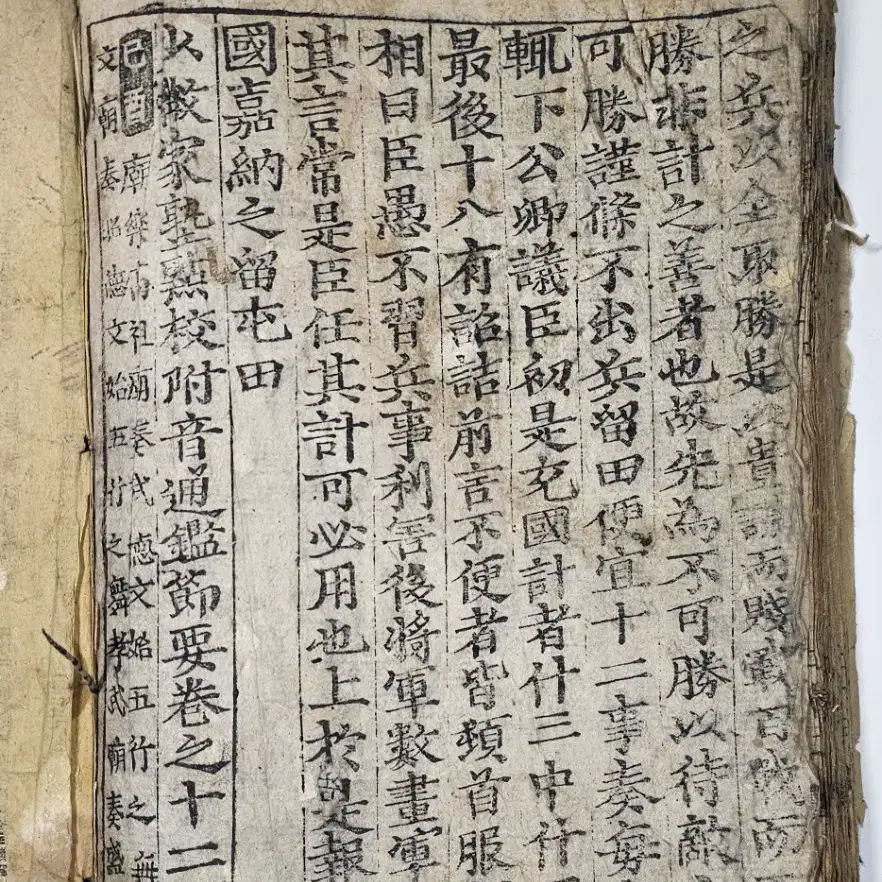 之兵以全取勝是以貴謀而賤戰百戰而
勝非計之善者也故先為不可勝以待敵
可勝謹條不出兵留田便宜十二事奏每
輒下公卿議臣初是充國計者什三中什
最後十八有詔詰前言不便者皆頓首服
相曰臣愚不習兵事利害後將軍數畫軍
其言常是臣任其計可必用也上於是報
國嘉納之留屯田
少微家塾點校附音通鑑節要卷之十二
己酉
廟祭高祖廟奏武德文始五行之舞
文廟奏昭德文始五行之舞孝武廟奏盛